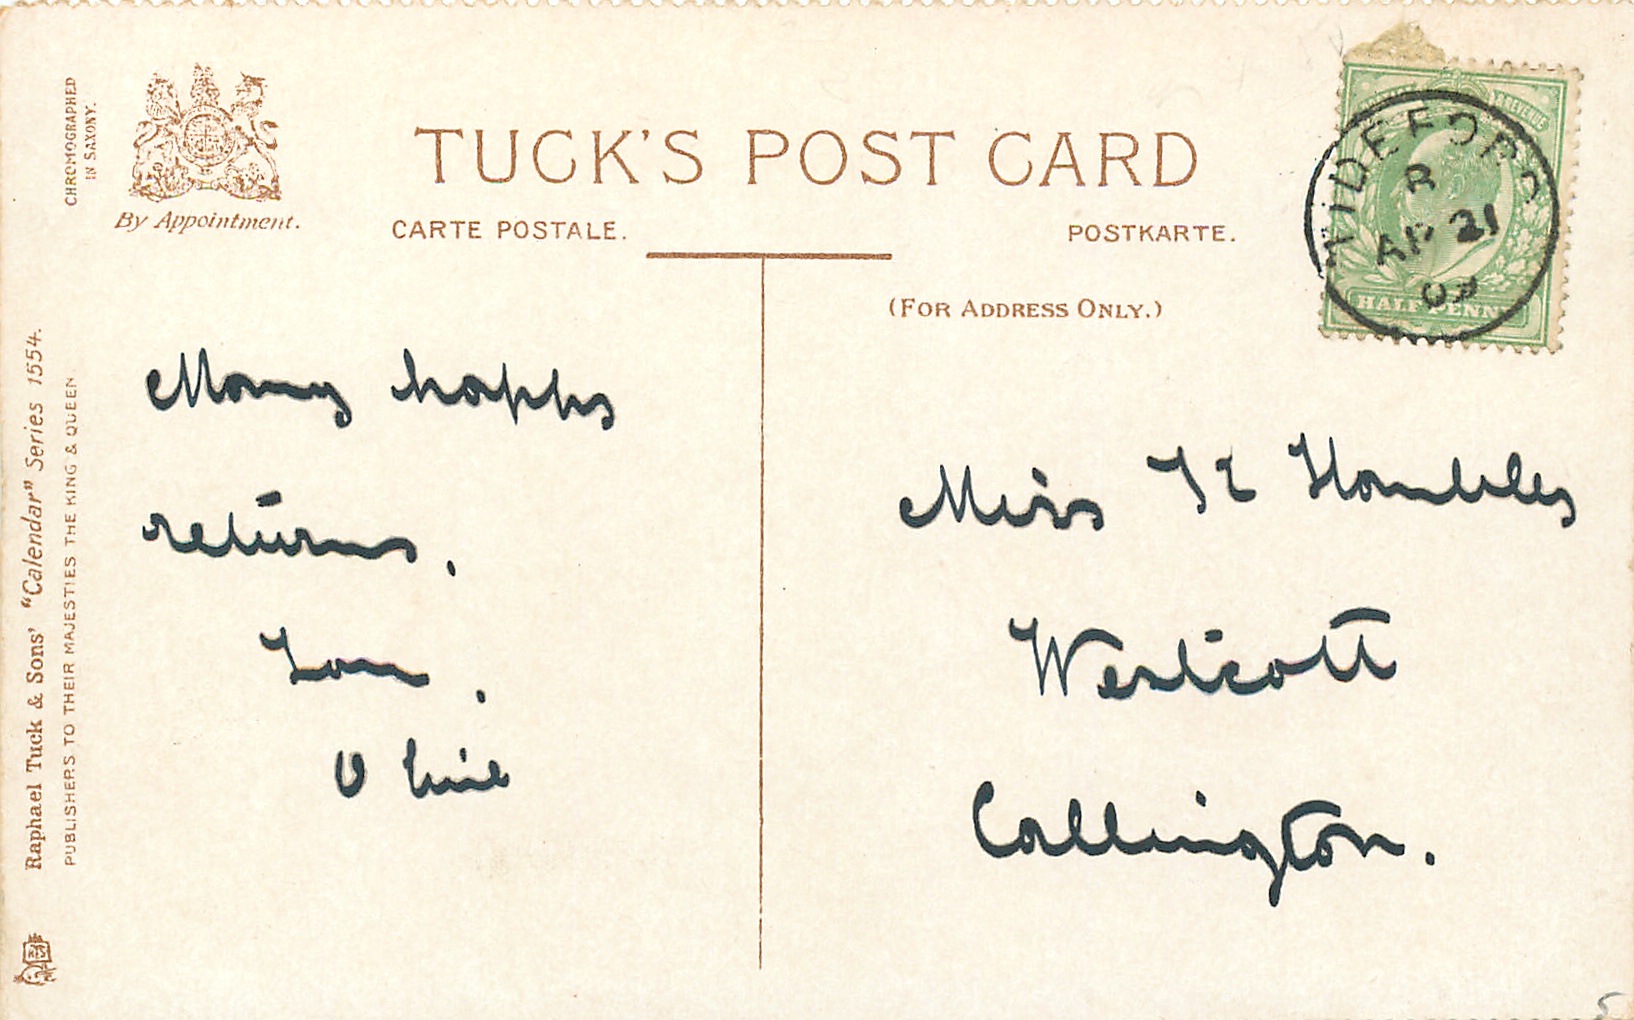 CHROMOGRAPHED
IN SAXONY.
By Appointment.
TUCK'S POST CARD
CARTE POSTALE.
POSTKARTE.
(FOR ADDRESS ONLY.)
AP 21
HALF PENNY
Raphael Tuck & Sons' "Calendar" Series 1554.
PUBLISHERS TO THEIR MAJESTIES THE KING & QUEEN
Many happy
returns.
Miss
Westcott
Callington.